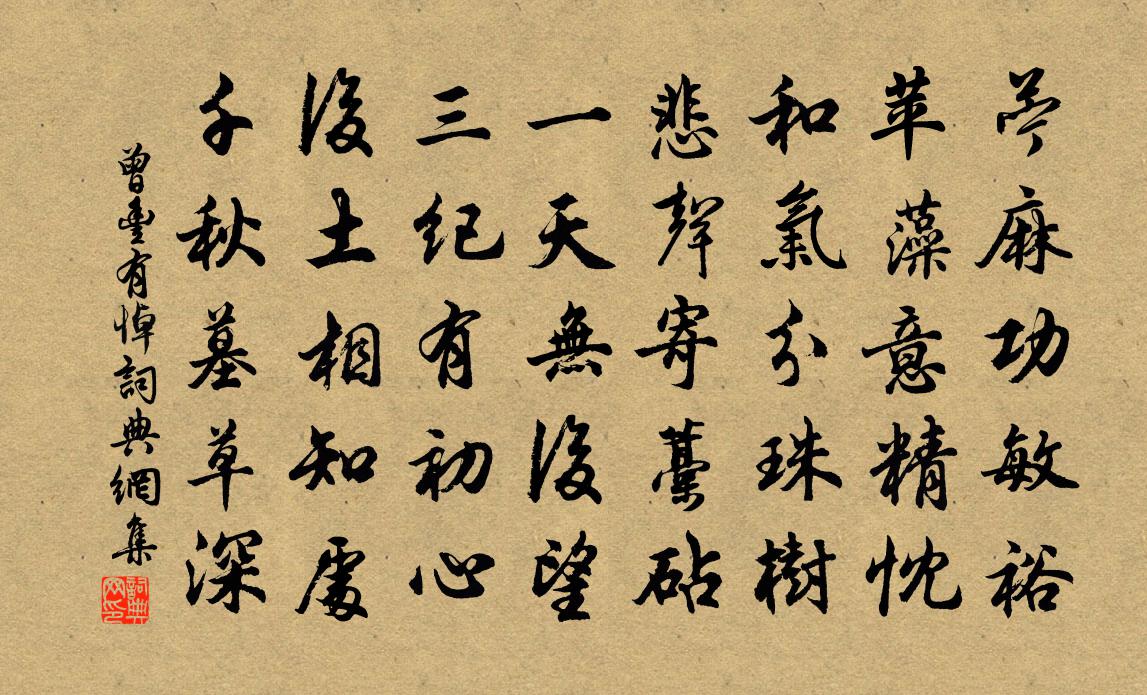 麻功敏裕
苹藻意精忱
和氣分珠樹
悲聲寄藁砧
一天無後望
三紀有初心
後土相知處
千秋墓草深
曾豐有悼詞典網集
詞典网印